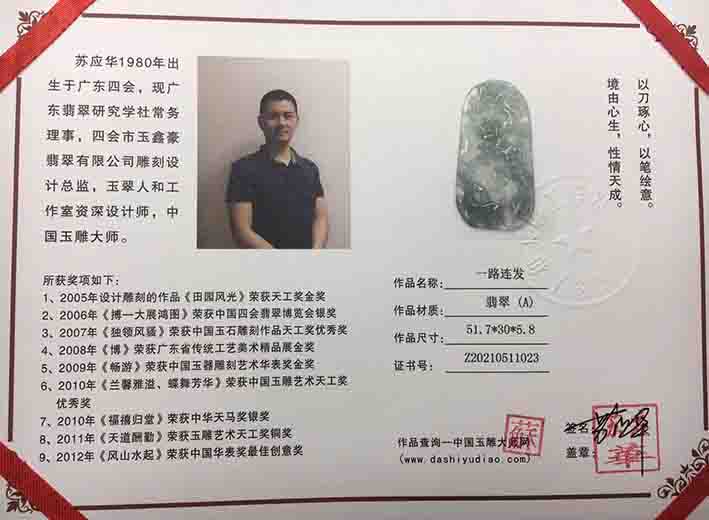 苏应华1980年出
生于广东四会，现广
东翡翠研究学社常务
理事，四会市玉鑫豪
翡翠有限公司雕刻设
计总监，玉翠人和工
作室资深设计师，中
国玉雕大师。
以刀琢心，以笔绘意。
境由心生，性情天成。
所获奖项如下：
1、2005年设计雕刻的作品《田园风光》荣获天工奖金奖
2、2006年《搏一大展鸿图》荣获中国四会翡翠博览会银奖
3、2007年《独领风骚》荣获中国玉石雕刻作品天工奖优秀奖
4、2008年《博》荣获广东省传统工艺美术精品展金奖
5、2009年《畅游》荣获中国玉器雕刻艺术华表奖金奖
6、2010年《兰馨雅溢、蝶舞芳华》荣获中国玉雕艺术天工奖
优秀奖
7、2010年《福禧归堂》荣获中华天马奖银奖
8、2011年《天道酬勤》荣获玉雕艺术天工奖铜奖
9、2012年《风山水起》荣获中国华表奖最佳创意奖
作品名称：一路连发
作品材质：翡翠（A）
作品尺寸：51.7*30*5.8
证书号：Z20210511023
作品查询一中国玉雕大师网
(www.dashiyudiao.com)
签名：
盖章：
蘇
華